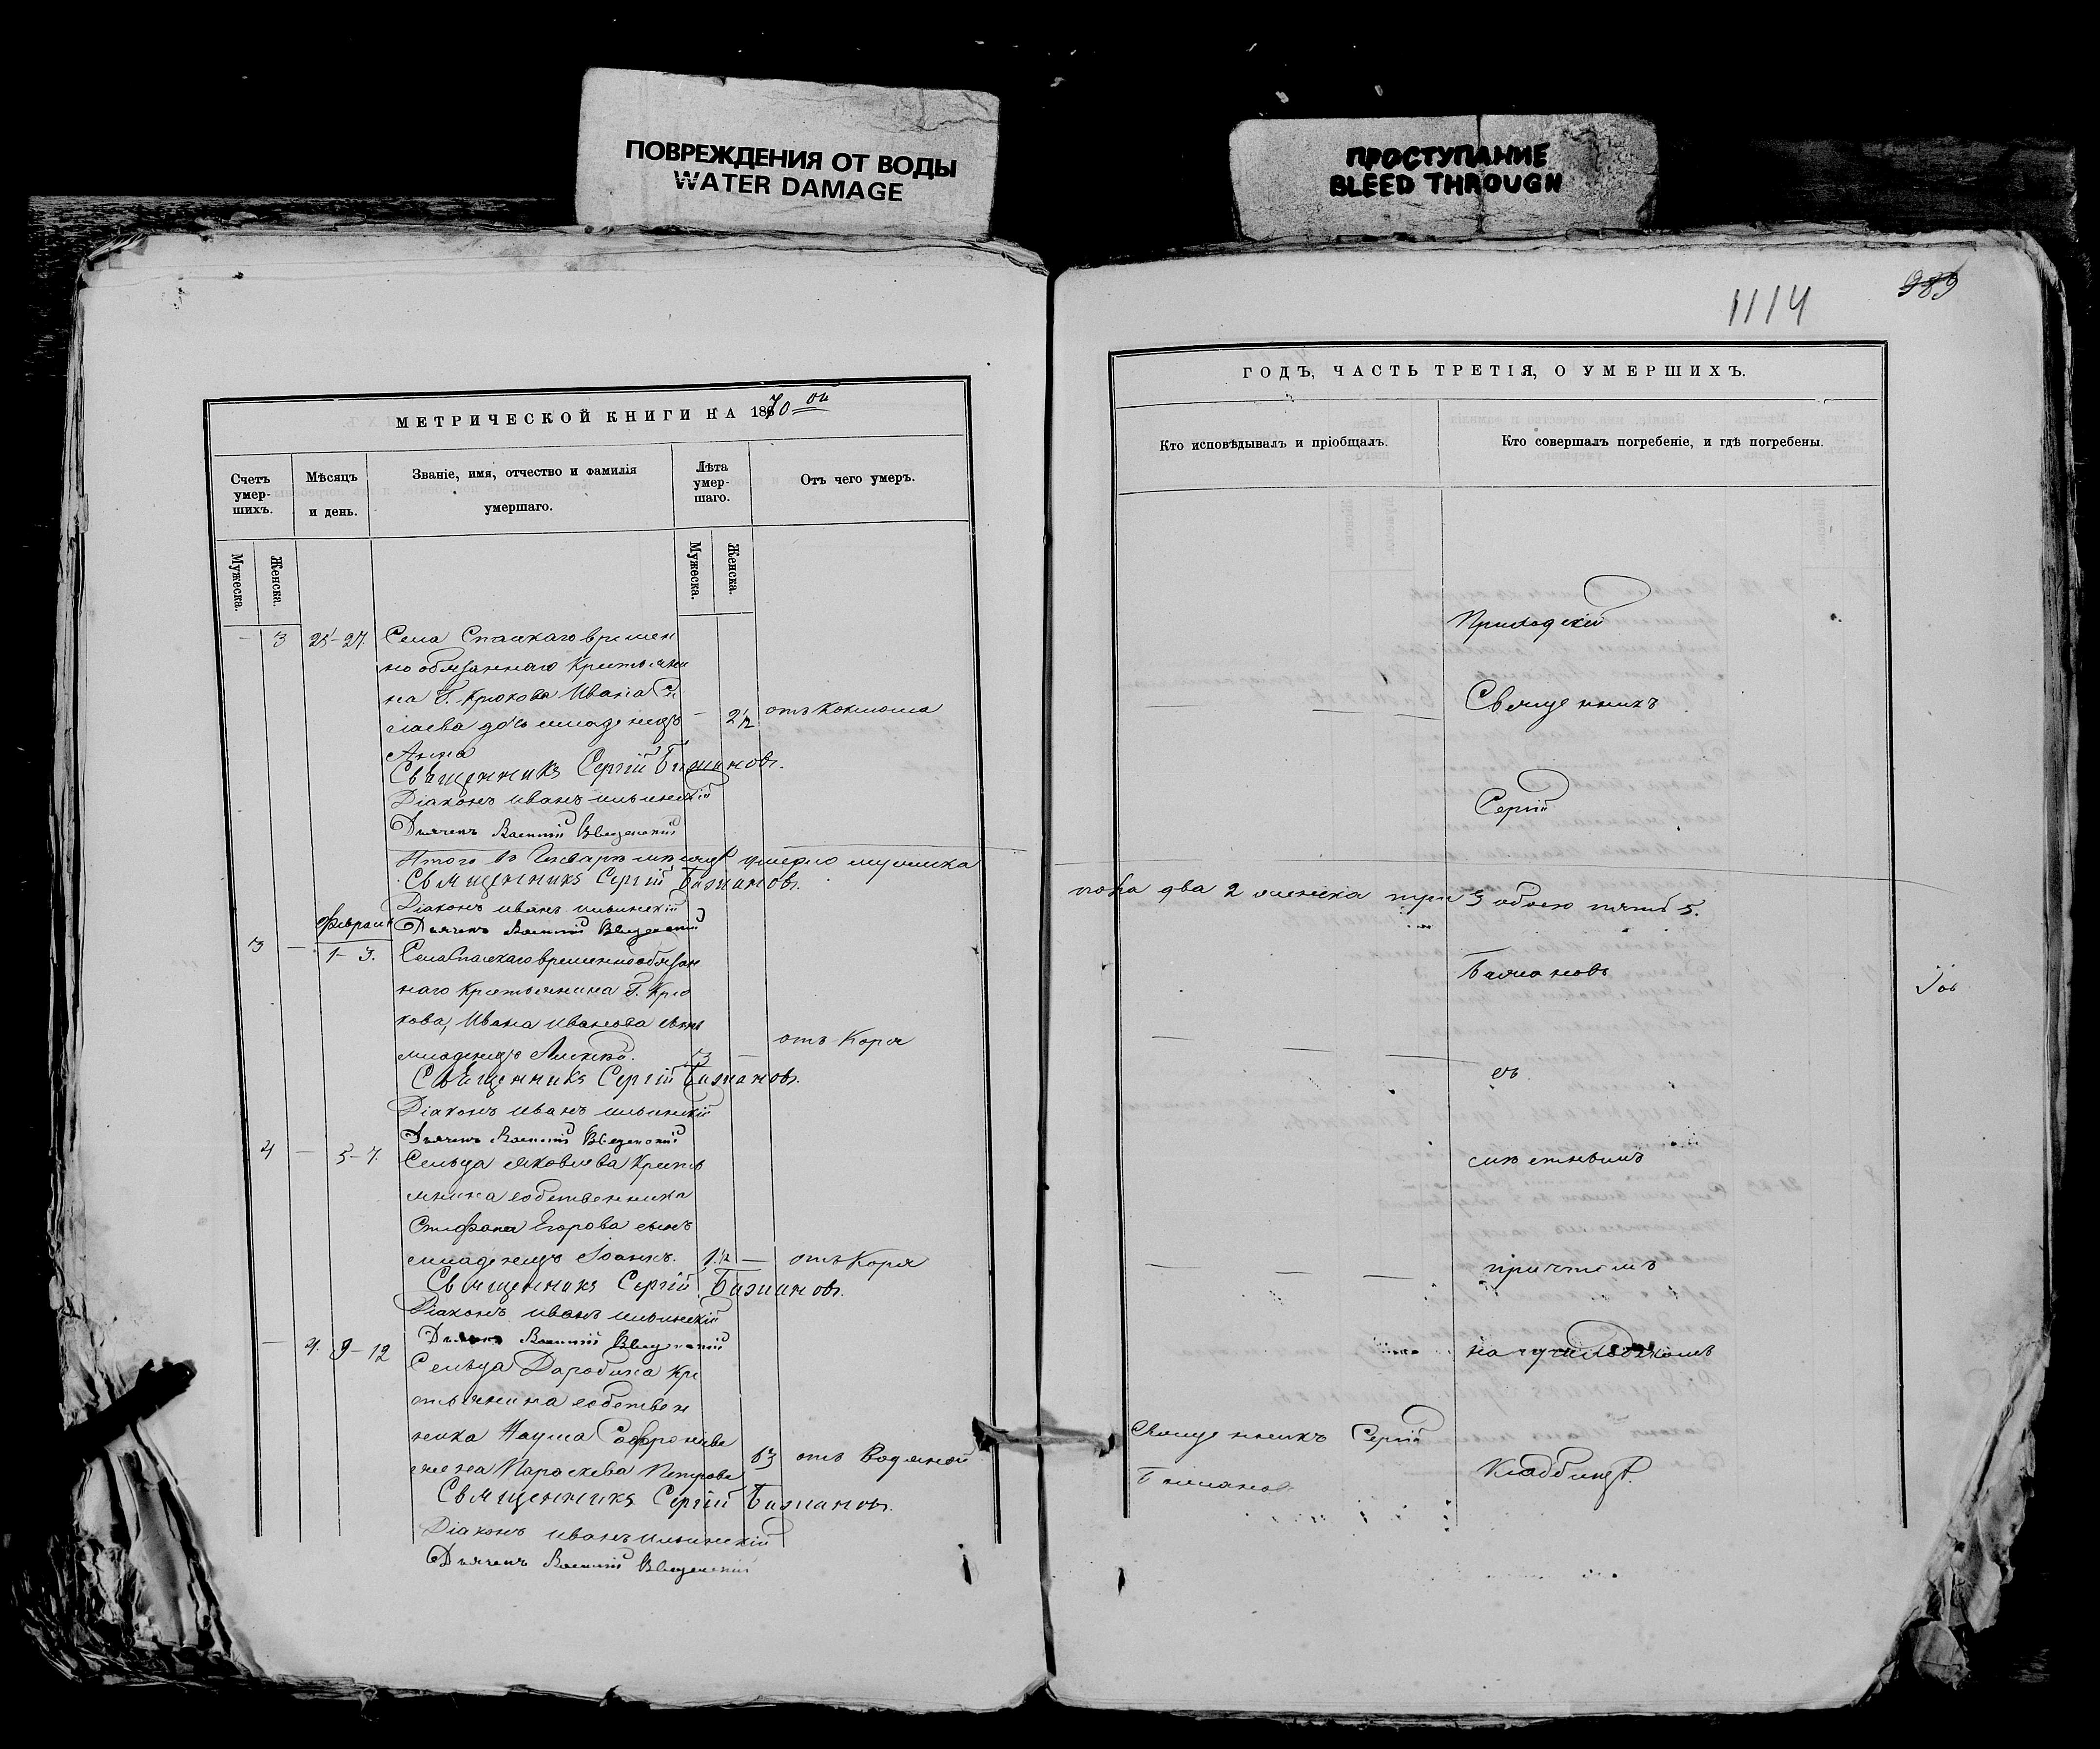 ПОВРЕЖДЕНИЯ ОТ ВОДЫ
WATER DAMAGE
ПРОСТУПАНИЕ
BLEED THROUGH
МЕТРИЧЕСКОЙ КНИГИ НА 1870 ой
Счетъ умер-шихъ.
Мѣсяцъ и день.
Званіе, имя, отчество и фамилія умершаго.
Лѣта умер-шаго.
Отъ чего умеръ.
Мужеска.
Женска.
Мужеска.
Женска.
— 3 25-27 Села Спаскаго времен
но обязаннаго Крестьяни
на Г. Крюкова Ивана
лаева дочь младенецъ — 2 1/2 отъ Коклюша
Анна
Священникъ Сергій Бажановъ.
Діаконъ Иванъ Ильинскій
Дьячекъ Василій Введенскій
Итого въ Генварѣ мѣсяцѣ умерло мужеска
Священникъ Сергій Бажановъ.
Діаконъ Иванъ Ильинскій
Февраль Дьячекъ Василій Введенскій
3 — 1-3. Села Спаскаго временнообязан
наго Крестьянина Г. Крю
кова, Ивана Иванова сынъ
младенецъ 3 — отъ Коря
Священникъ Сергій Бажановъ.
Діаконъ Иванъ Ильинскій
Дьячекъ Василій Введенскій
4 — 5-7. Сельца Яковлева Кресть
янина собственника
Стефана Егорова сынъ
младенецъ Іоаннъ. 1 1/2 — отъ Коря
Священникъ Сергій Бажановъ.
Діаконъ Иванъ Ильинскій
Дьячекъ Василій Введенскій
— 4. 9-12
Сельца Даробина Кре
стьянина собствен
ника Наума Софронова
жена Параскева Петрова 63 отъ Водяной
Священникъ Сергій Бажановъ.
Діаконъ Иванъ Ильинскій
Дьячекъ Василій Введенскій
1114
989
ГОДЪ, ЧАСТЬ ТРЕТІЯ, О УМЕРШИХЪ.
Кто исповѣдывалъ и пріобщалъ.
Кто совершалъ погребеніе, и гдѣ погребены.
Приходскій
— — — Священникъ
Сергій
пола два 2 женска три 3 обоего пять 5.
Бажановъ
— — — съ
мѣстнымъ
— — — причтомъ
на приходскомъ
Священникъ Сергій
Бажановъ
Кладбищѣ.